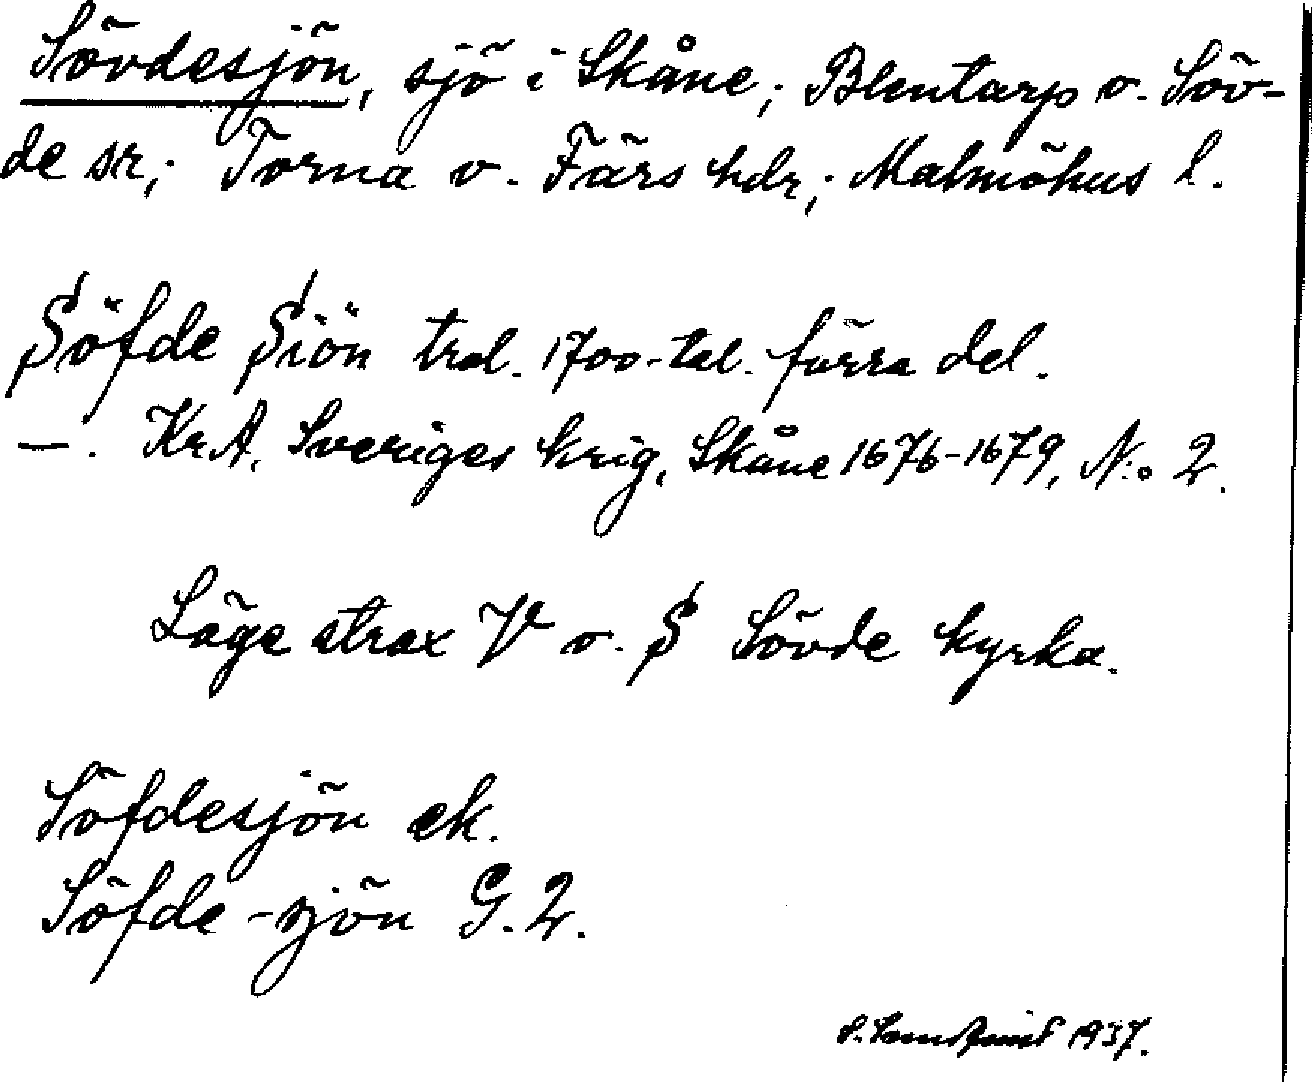 Sövdesjön, sjö i Skåne; Blentarp o. Söv-
de sr; Torna o. Färs hdr; Malmöhus l.
Söfde Siön trol. 1700-tal. förra del.
—. KrA, Sveriges krig, Skåne 1676-1679, N:o 2.
Läge strax V o. S Sövde kyrka.
Söfdesjön ek.
Söfde-sjön G. 2.
1937.